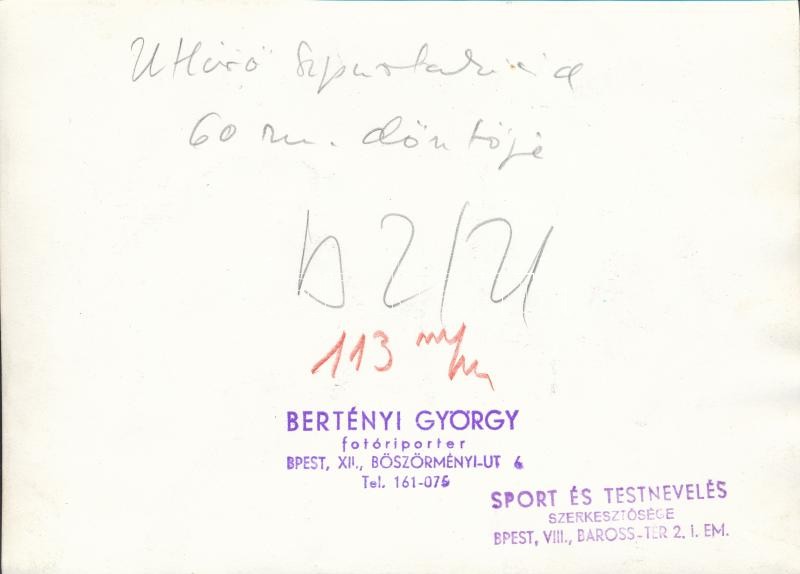 Uttörő Szpartakiád
60 m. döntője
113 m/m
BERTÉNYI GYÖRGY
fotóriporter
BPEST, XII., BÖSZÖRMÉNYI-UT 6
Tel. 161-075
SPORT ÉS TESTNEVELÉS
SZERKESZTŐSÉGE
BPEST, VIII., BAROSS-TÉR 2. I. EM.